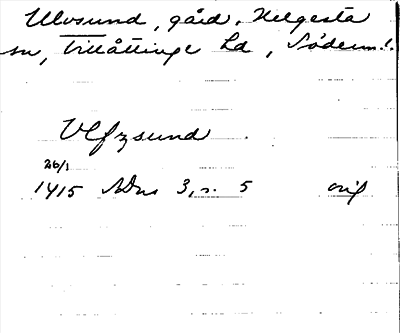 Ulvsund, gård, Helgesta
sn, Villåttinge hd, Söderml.
Vlfzsund
26/1
1415 SDns 3, s. 5 orig